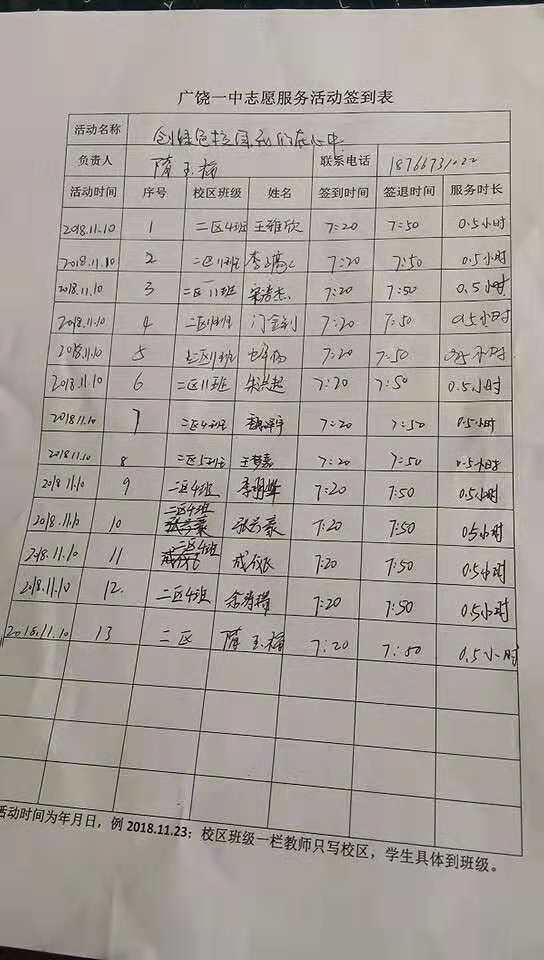 广饶一中志愿服务活动签到表
活动名称 创绿色校园 我们在心中
负责人 隋玉梅 联系电话
活动时间 序号 校区班级 姓名 签到时间 签退时间 服务时长
2018.11.10 1 二区4班 王雅欣 7:20 7:50 0.5小时
2018.11.10 2 二区11班 7:20 7:50 0.5小时
2018.11.10 3 二区11班 7:20 7:50 0.5小时
2018.11.10 4 门金利 7:20 7:50 0.5小时
2018.11.10 5 二区11班 7:20 7:50 0.5小时
2018.11.10 6 二区11班 7:20 7:50 0.5小时
2018.11.10 7 二区4班 7:20 7:50 0.5小时
2018.11.10 8 二区5班 7:20 7:50 0.5小时
2018.11.10 9 二区4班 7:20 7:50 0.5小时
2018.11.10 10 二区4班 7:20 7:50 0.5小时
2018.11.10 11 二区4班 7:20 7:50 0.5小时
2018.11.10 12. 二区4班 7:20 7:50 0.5小时
2018.11.10 13 二区 隋玉梅 7:20 7:50 0.5小时
活动时间为年月日，例 2018.11.23；校区班级一栏教师只写校区，学生具体到班级。